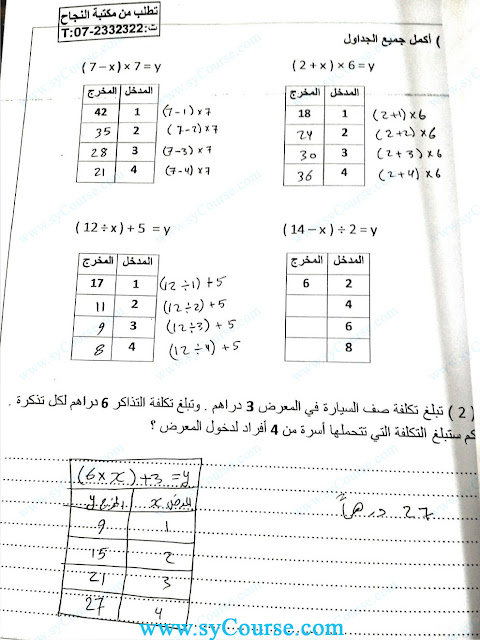 تطلب من مكتبة النجاح
ت:07-2332322:T
) أكمل جميع الجداول
(2 + x) × 6 = y
المدخل المخرج
1 18 (2+1)×6
2 24 (2+2)×6
3 30 (2+3)×6
4 36 (2+4)×6
(7 – x) × 7 = y
المدخل المخرج
1 42 (7-1)×7
2 35 (7-2)×7
3 28 (7-3)×7
4 21 (7-4)×7
(14 – x) ÷ 2 = y
المدخل المخرج
2 6
4
6
8
(12 ÷ x) + 5 = y
المدخل المخرج
1 17 (12÷1)+5
2 11 (12÷2)+5
3 9 (12÷3)+5
4 8 (12÷4)+5
( 2 ) تبلغ تكلفة صف السيارة في المعرض 3 دراهم . وتبلغ تكلفة التذاكر 6 دراهم لكل تذكرة .
كم ستبلغ التكلفة التي تتحملها أسرة من 4 أفراد لدخول المعرض ؟
27 درهماً
(6×x)+3=y
x y
1 9
2 15
3 21
4 27
www.syCourse.com